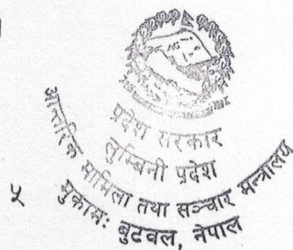 प्रदेश सरकार
लुम्बिनी प्रदेश
आन्तरिक मामिला तथा सञ्चार मन्त्रालय
मुकामः बुटवल, नेपाल
५